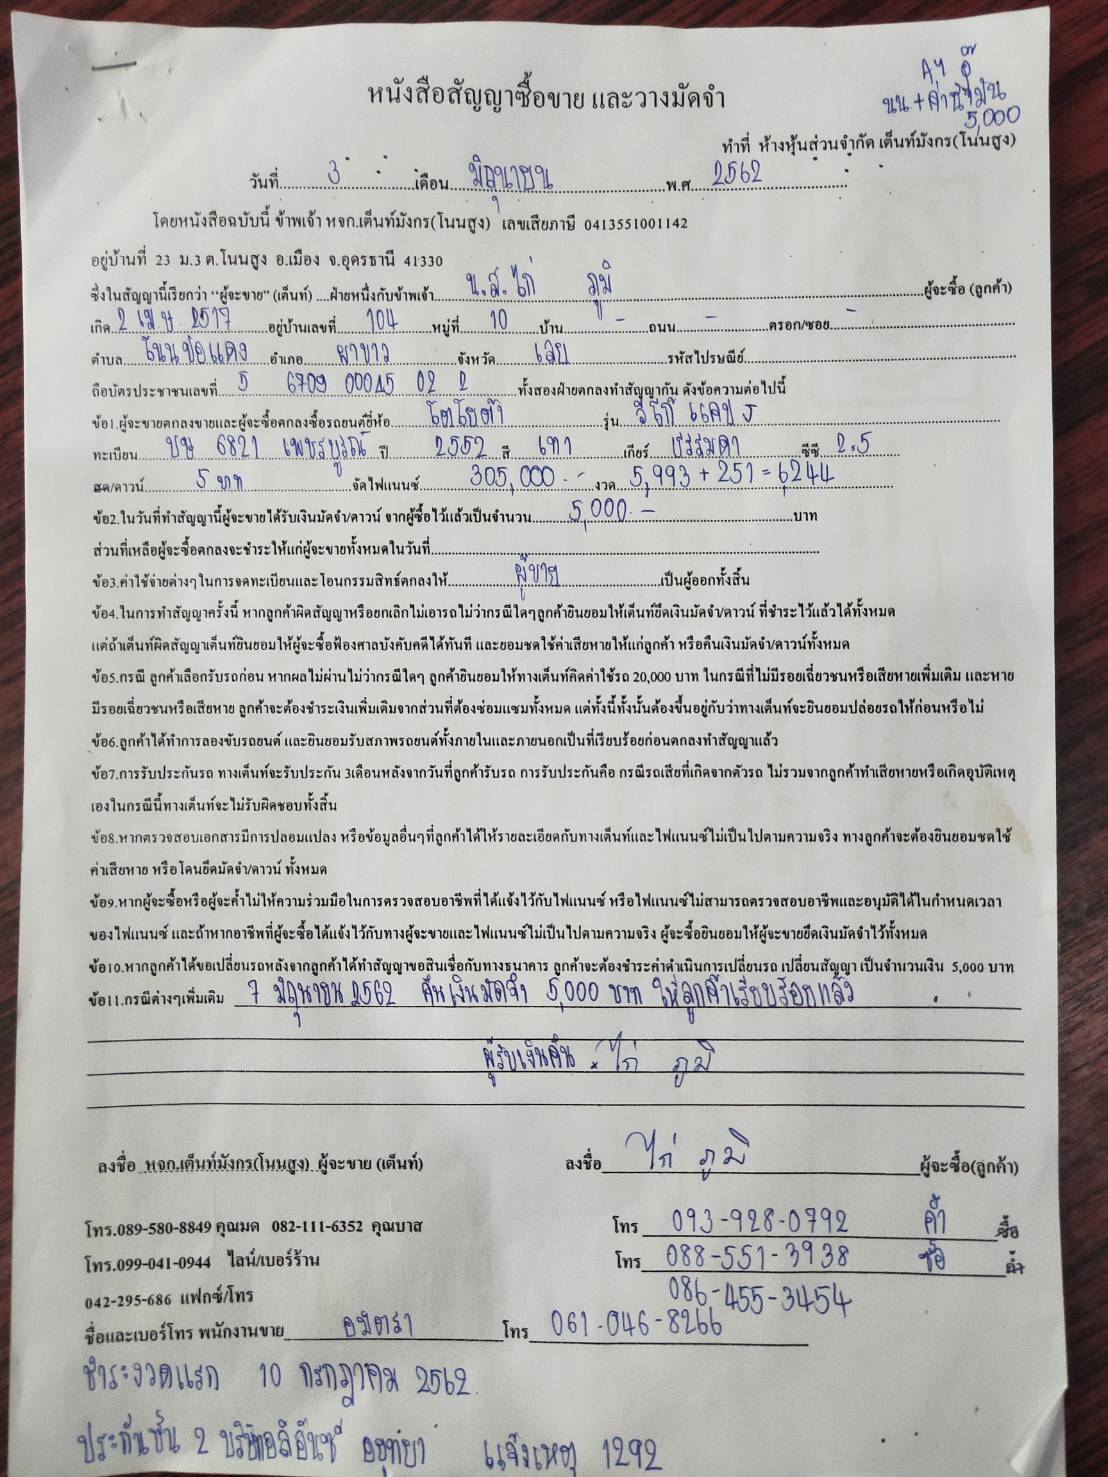 AY อุ๊
นน + ค่านิติ
5,000
หนังสือสัญญาซื้อขาย และวางมัดจำ
ทำที่ ห้างหุ้นส่วนจำกัด เต็นท์มังกร(โนนสูง)
วันที่ 3 เดือน มิถุนายน พ.ศ 2562
โดยหนังสือฉบับนี้ ข้าพเจ้า หจก.เต็นท์มังกร(โนนสูง) เลขเสียภาษี 0413551001142
อยู่บ้านที่ 23 ม.3 ต.โนนสูง อ.เมือง จ.อุดรธานี 41330
ซึ่งในสัญญานี้เรียกว่า "ผู้จะขาย" (เต็นท์) ....ฝ่ายหนึ่งกับข้าพเจ้า น.ส.ไก่ ภูมิ ผู้จะซื้อ (ลูกค้า)
เกิด 2 เมษ 2517 อยู่บ้านเลขที่ 104 หมู่ที่ 10 บ้าน - ถนน - ตรอก/ซอย -
ตำบล โนนปอแดง อำเภอ ผาขาว จังหวัด เลย รหัสไปรษณีย์
ถือบัตรประชาชนเลขที่ 5 6709 00045 02 2 ทั้งสองฝ่ายตกลงทำสัญญากัน ดังข้อความต่อไปนี้
ข้อ1.ผู้จะขายตกลงขายและผู้จะซื้อตกลงซื้อรถยนต์ยี่ห้อ โตโยต้า รุ่น วีโก้ แคป J
ทะเบียน บษ 6821 เพชรบูรณ์ ปี 2552 สี เทา เกียร์ ธรรมดา ซีซี 2.5
สด/ดาวน์ 5 บาท จัดไฟแนนซ์ 305,000.- งวด 5,993 + 251 = 6,244
ข้อ2.ในวันที่ทำสัญญานี้ผู้จะขายได้รับเงินมัดจำ/ดาวน์ จากผู้ซื้อไว้แล้วเป็นจำนวน 5,000.- บาท
ส่วนที่เหลือผู้จะซื้อตกลงจะชำระให้แก่ผู้จะขายทั้งหมดในวันที่
ข้อ3.ค่าใช้จ่ายต่างๆในการจดทะเบียนและโอนกรรมสิทธ์ตกลงให้ ผู้ขาย เป็นผู้ออกทั้งสิ้น
ข้อ4.ในการทำสัญญาครั้งนี้ หากลูกค้าผิดสัญญาหรือยกเลิกไม่เอารถไม่ว่ากรณีใดๆลูกค้ายินยอมให้เต็นท์ยึดเงินมัดจำ/ดาวน์ ที่ชำระไว้แล้วได้ทั้งหมด
แต่ถ้าเต็นท์ผิดสัญญาเต็นท์ยินยอมให้ผู้จะซื้อฟ้องศาลบังคับคดีได้ทันที และยอมชดใช้ค่าเสียหายให้แก่ลูกค้า หรือคืนเงินมัดจำ/ดาวน์ทั้งหมด
ข้อ5.กรณี ลูกค้าเลือกรับรถก่อน หากผลไม่ผ่านไม่ว่ากรณีใดๆ ลูกค้ายินยอมให้ทางเต็นท์คิดค่าใช้รถ 20,000 บาท ในกรณีที่ไม่มีรอยเฉี่ยวชนหรือเสียหายเพิ่มเติม และหาย
มีรอยเฉี่ยวชนหรือเสียหาย ลูกค้าจะต้องชำระเงินเพิ่มเติมจากส่วนที่ต้องซ่อมแซมทั้งหมด แต่ทั้งนี้ทั้งนั้นต้องขึ้นอยู่กับว่าทางเต็นท์จะยินยอมปล่อยรถให้ก่อนหรือไม่
ข้อ6.ลูกค้าได้ทำการลองขับรถยนต์ และยินยอมรับสภาพรถยนต์ทั้งภายในและภายนอกเป็นที่เรียบร้อยก่อนตกลงทำสัญญาแล้ว
ข้อ7.การรับประกันรถ ทางเต็นท์จะรับประกัน 3เดือนหลังจากวันที่ลูกค้ารับรถ การรับประกันคือ กรณีรถเสียที่เกิดจากตัวรถ ไม่รวมจากลูกค้าทำเสียหายหรือเกิดอุบัติเหตุ
เองในกรณีนี้ทางเต็นท์จะไม่รับผิดชอบทั้งสิ้น
ข้อ8.หากตรวจสอบเอกสารมีการปลอมแปลง หรือข้อมูลอื่นๆที่ลูกค้าได้ให้รายละเอียดกับทางเต็นท์และไฟแนนซ์ไม่เป็นไปตามความจริง ทางลูกค้าจะต้องยินยอมชดใช้
ค่าเสียหาย หรือโดนยึดมัดจำ/ดาวน์ ทั้งหมด
ข้อ9.หากผู้จะซื้อหรือผู้จะค้ำไม่ให้ความร่วมมือในการตรวจสอบอาชีพที่ได้แจ้งไว้กับไฟแนนซ์ หรือไฟแนนซ์ไม่สามารถตรวจสอบอาชีพและอนุมัติได้ในกำหนดเวลา
ของไฟแนนซ์ และถ้าหากอาชีพที่ผู้จะซื้อได้แจ้งไว้กับทางผู้จะขายและไฟแนนซ์ไม่เป็นไปตามความจริง ผู้จะซื้อยินยอมให้ผู้จะขายยึดเงินมัดจำไว้ทั้งหมด
ข้อ10.หากลูกค้าได้ขอเปลี่ยนรถหลังจากลูกค้าได้ทำสัญญาขอสินเชื่อกับทางธนาคาร ลูกค้าจะต้องชำระค่าดำเนินการเปลี่ยนรถ เปลี่ยนสัญญา เป็นจำนวนเงิน 5,000 บาท
ข้อ11.กรณีต่างๆเพิ่มเติม 7 มิถุนายน 2562 คืนเงินมัดจำ 5,000 บาท ให้ลูกค้าเรียบร้อยแล้ว
ผู้รับเงินคืน x ไก่ ภูมิ
ลงชื่อ หจก.เต็นท์มังกร(โนนสูง) ผู้จะขาย (เต็นท์) ลงชื่อ ไก่ ภูมิ ผู้จะซื้อ(ลูกค้า)
โทร.089-580-8849 คุณมด 082-111-6352 คุณบาส โทร 093-928-0792 ค้ำ ซื้อ
โทร.099-041-0944 ไลน์/เบอร์ร้าน โทร 088-551-3938 ซื้อ ค้ำ
042-295-686 แฟกซ์/โทร 086-455-3454
ชื่อและเบอร์โทร พนักงานขาย อมิตรา โทร 061-046-8266
ชำระงวดแรก 10 กรกฎาคม 2562.
ประกันชั้น 2 บริษัทอลิอันซ์ อยุทยา แจ้งเหตุ 1292